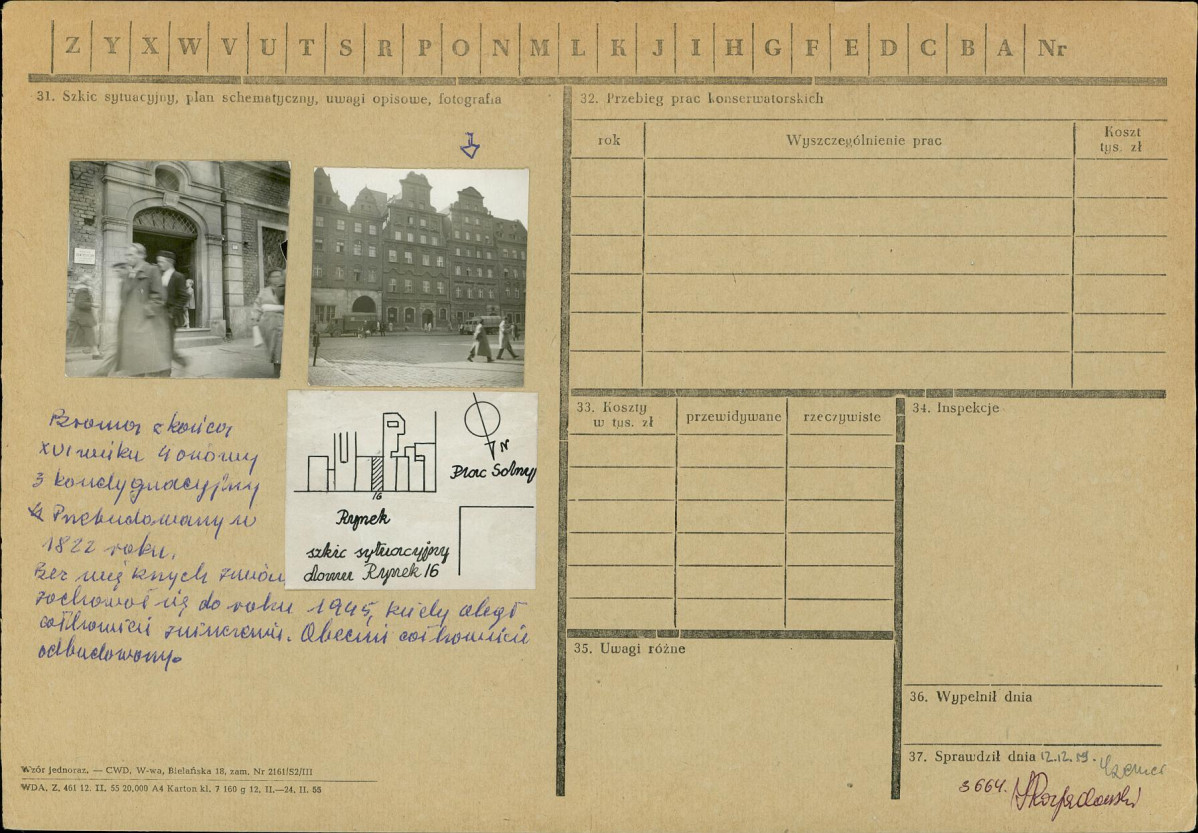 Z Y X W V U T S R P O N M L K J I H G F E D C B A Nr
31. Szkic sytuacyjny, plan schematyczny, uwagi opisowe, fotografia
Brama z końca
XVI wieku 4 osiowy
3 kondygnacyjny
Przebudowany w
1822 roku.
Bez większych zmian
zachował się do roku 1945, kiedy uległ
całkowicie zniszczeniu. Obecnie całkowicie
odbudowany.
N
Plac Solny
16
Rynek
szkic sytuacyjny
domu Rynek 16
Wzór jednoraz. — CWD, W-wa, Bielańska 18, zam. Nr 2161/S2/III
WDA. Z. 461 12. II. 55 20,000 A4 Karton kl. 7 160 g 12. II.—24. II. 55
32. Przebieg prac konserwatorskich
rok Wyszczególnienie prac Koszt
tys. zł
33. Koszty
w tys. zł przewidywane rzeczywiste
34. Inspekcje
35. Uwagi różne
36. Wypełnił dnia
37. Sprawdził dnia 12.12.59.
3664.